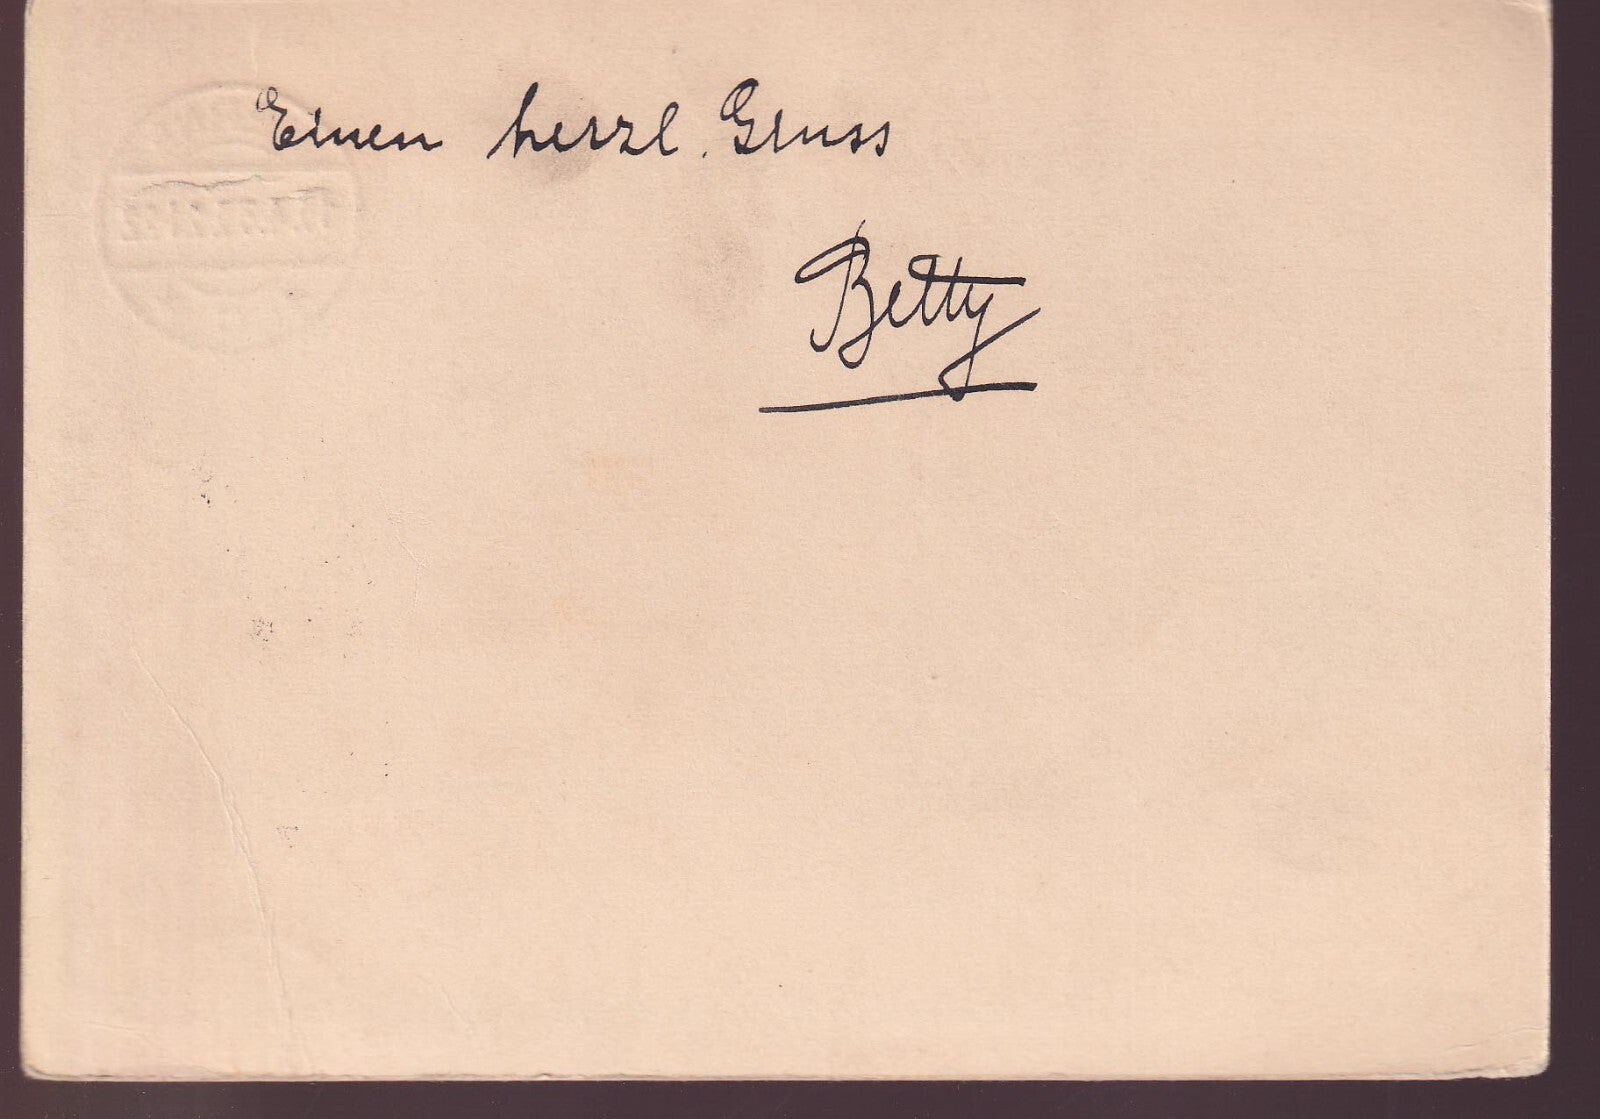 Einen herzl. Gruss
Betty